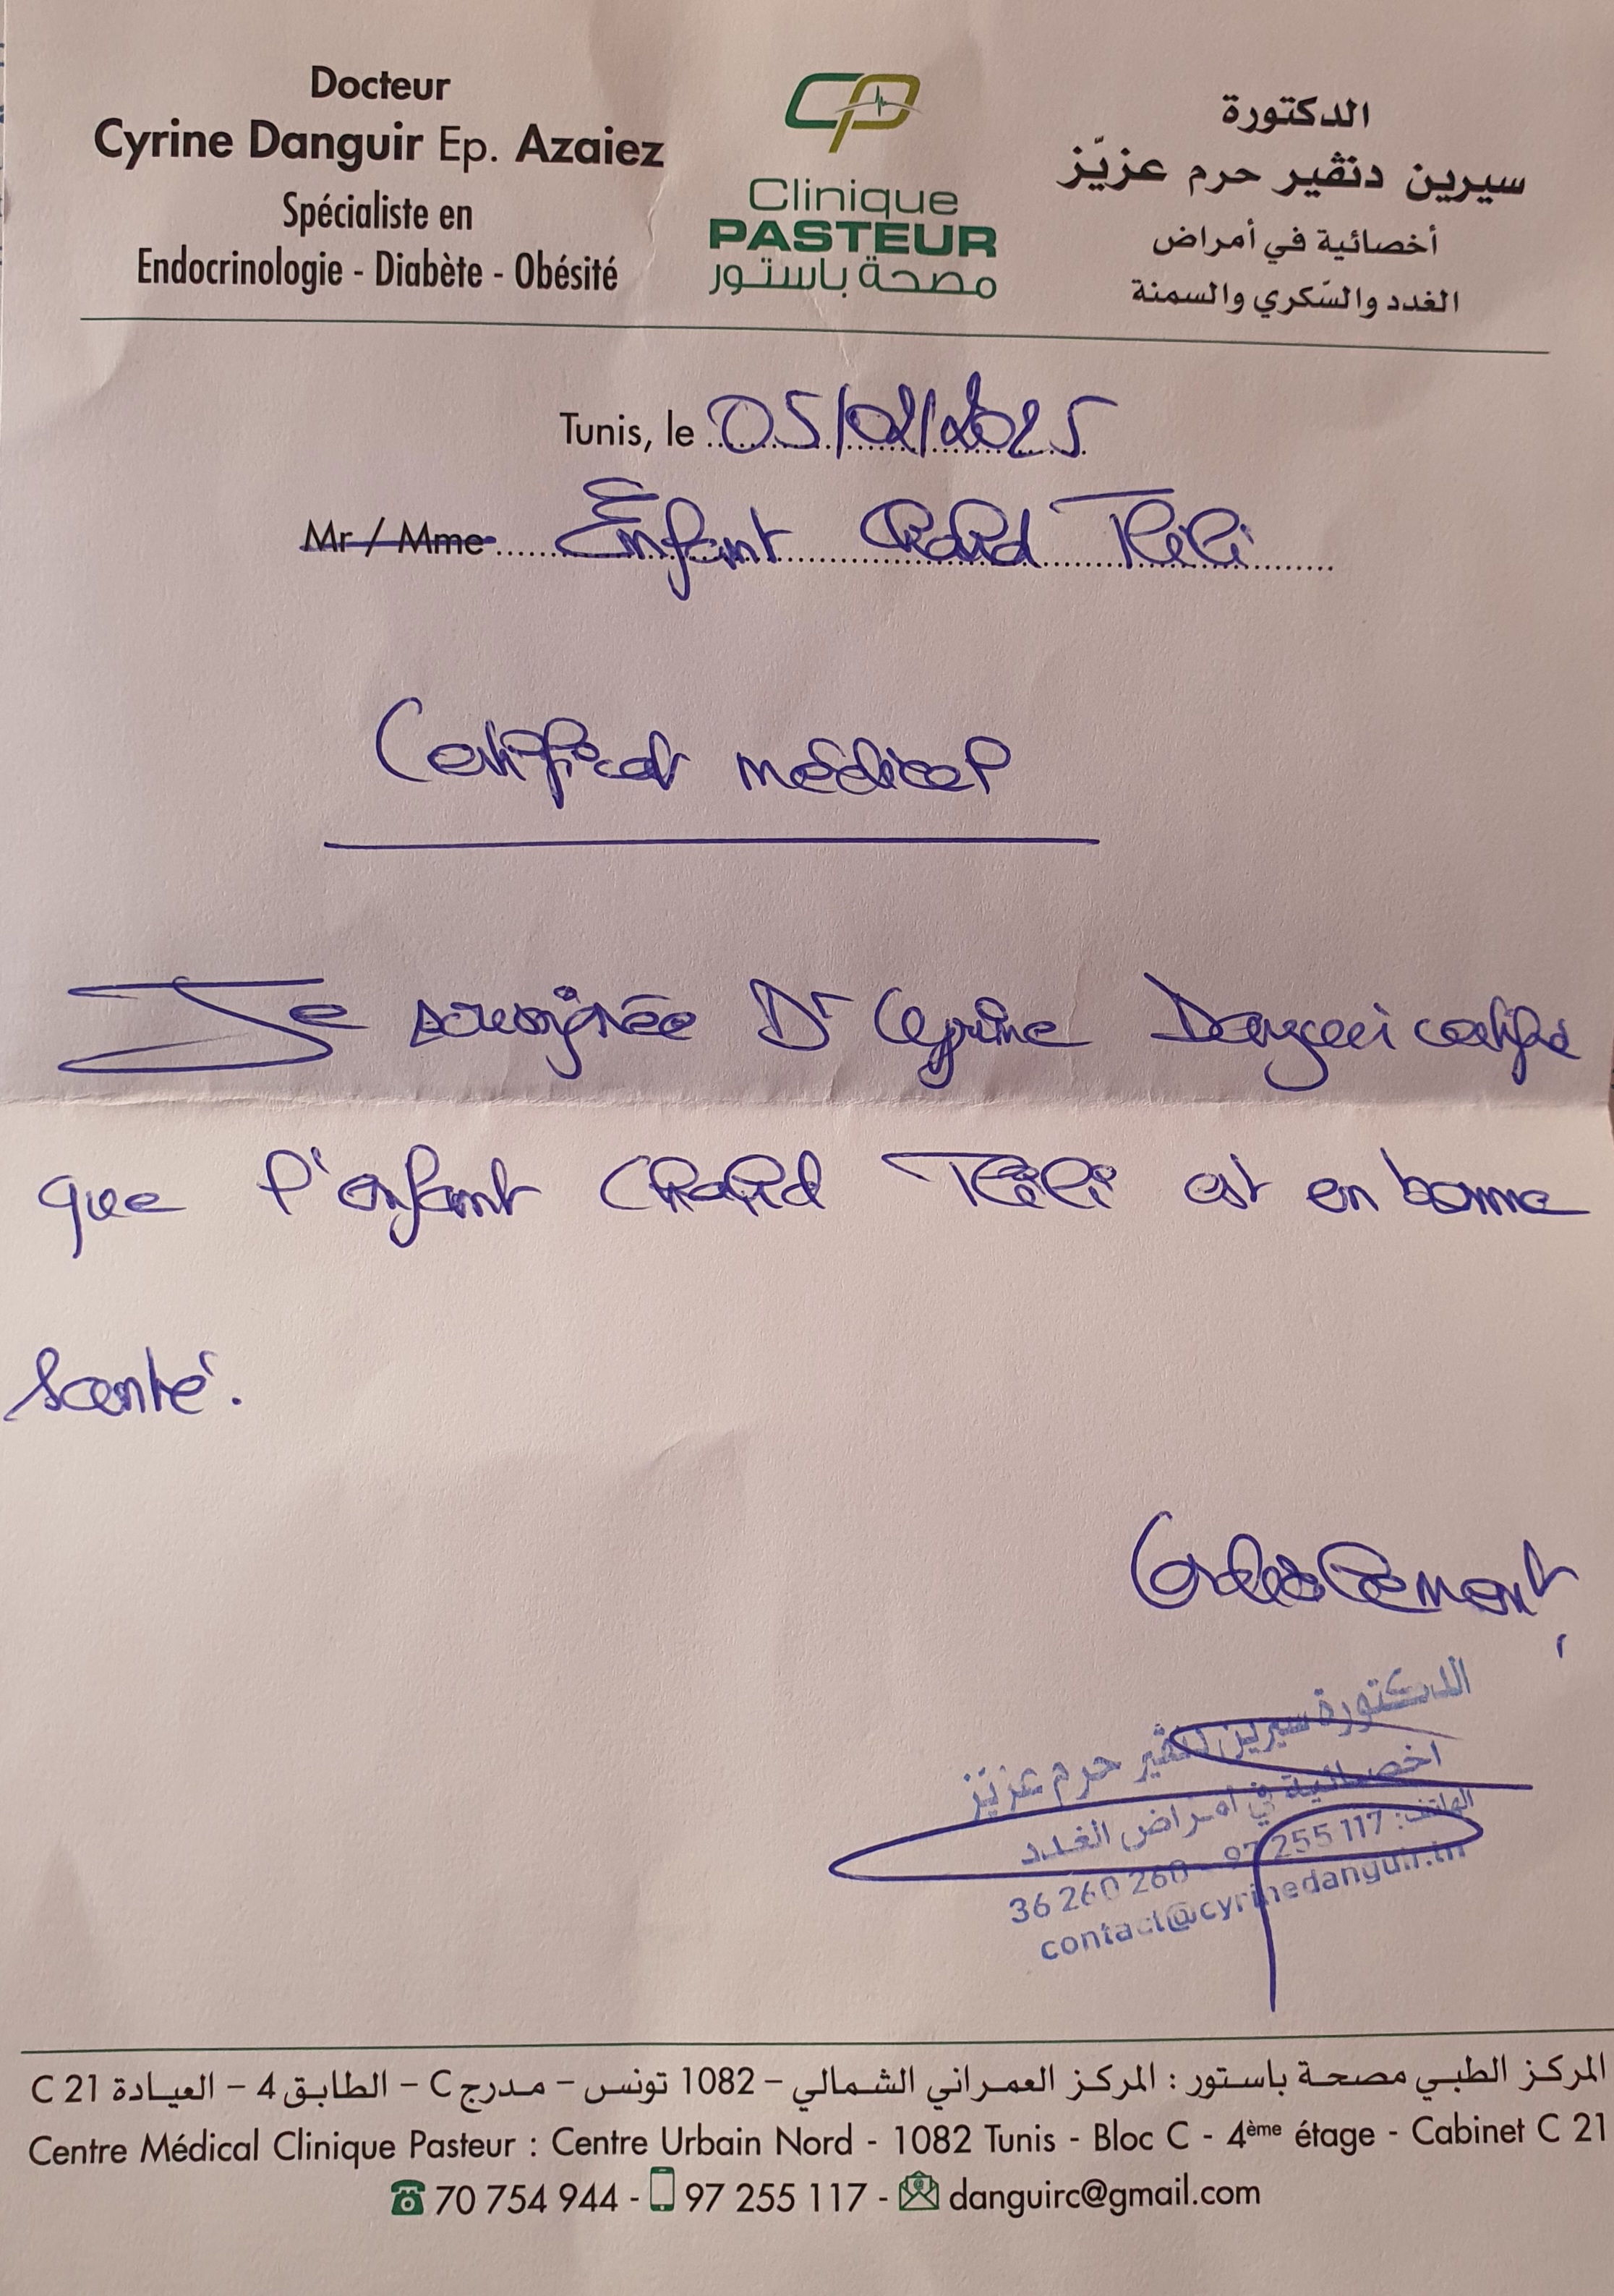 Docteur
Cyrine Danguir Ep. Azaiez
Spécialiste en
Endocrinologie - Diabète - Obésité
Clinique
PASTEUR
مصحة باستور
الدكتورة
سيرين دنڨير حرم عزيّز
أخصائية في أمراض
الغدد والسّكري والسمنة
Tunis, le 05/02/2025
Mr / Mme Enfant Khalid Tlili
Certificat médical
Je soussignée Dr Cyrine Danguir certifie
que l'enfant Khalid Tlili est en bonne
santé.
Cordialement,
الدكتورة سيرين دنڨير حرم عزيّز
أخصائية في أمراض الغدد
الهاتف: 117 255 97 - 260 260 36
contact@cyrinedanguir.tn
المركز الطبي مصحة باستور : المركز العمراني الشمالي – 1082 تونس – مدرج C – الطابق 4 – العيادة C 21
Centre Médical Clinique Pasteur : Centre Urbain Nord - 1082 Tunis - Bloc C - 4ème étage - Cabinet C 21
70 754 944 - 97 255 117 - danguirc@gmail.com